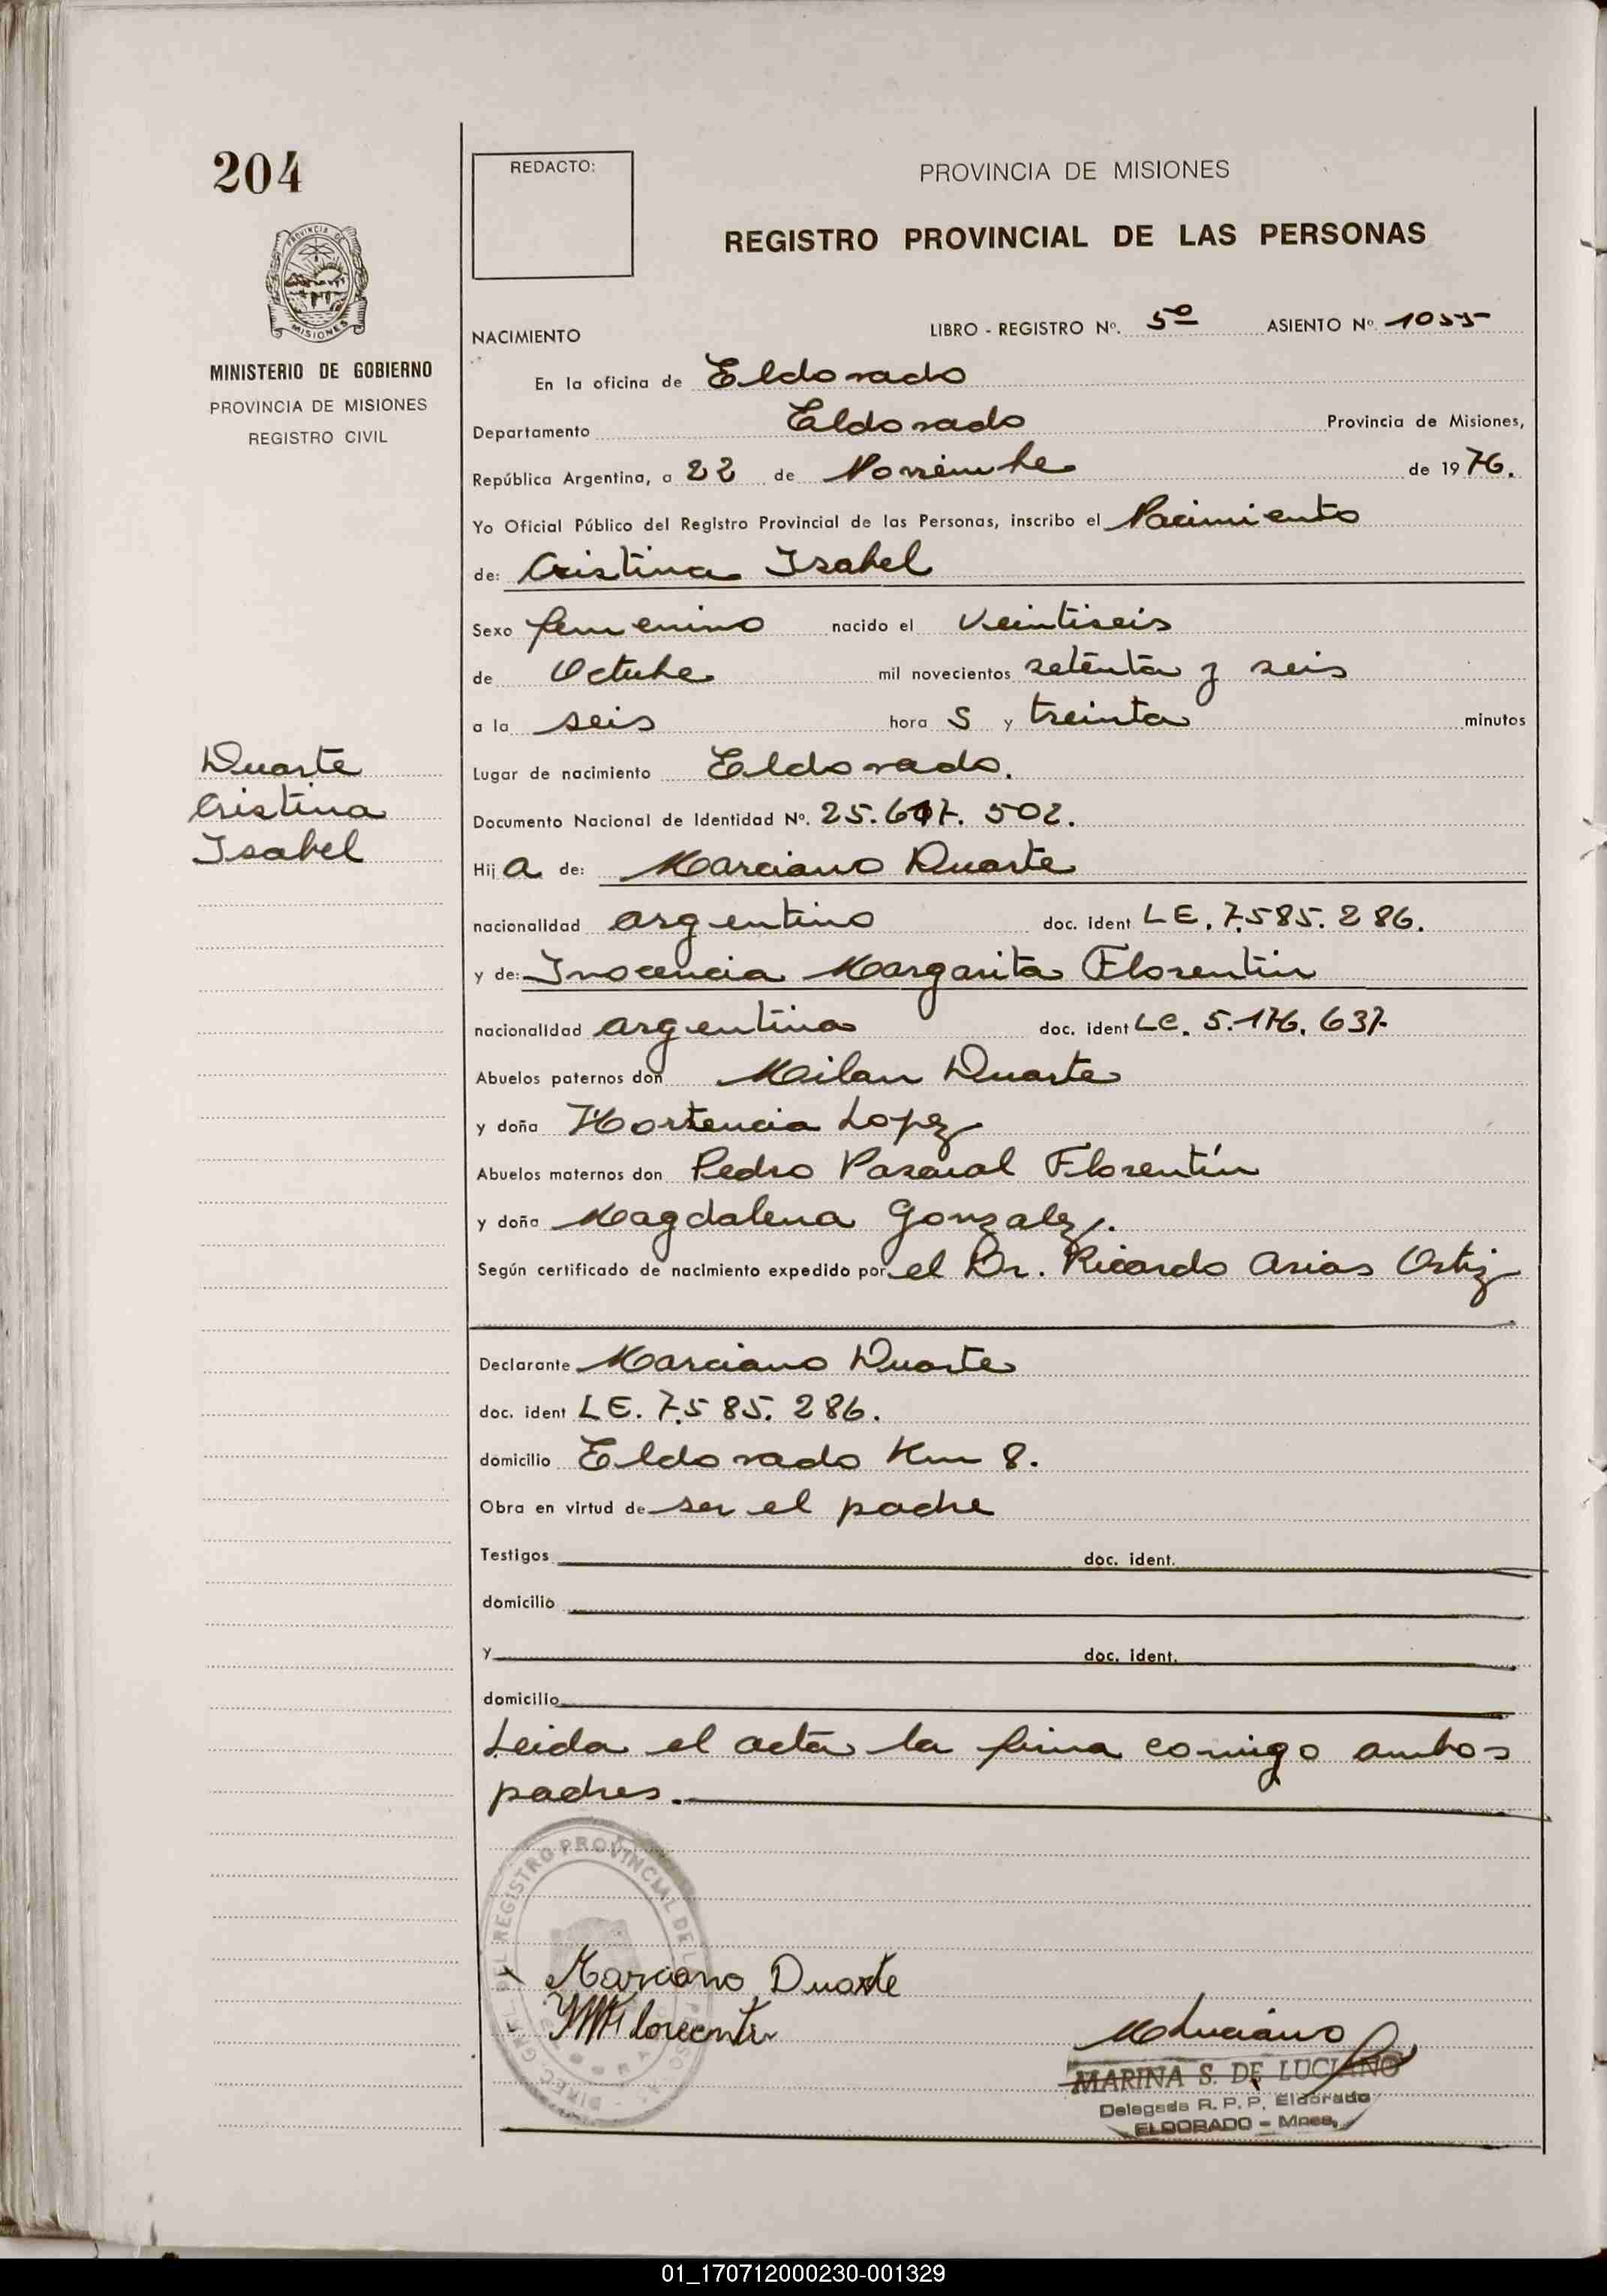 204
REDACTO:
PROVINCIA DE MISIONES
REGISTRO PROVINCIAL DE LAS PERSONAS
PROVINCIA DE
MISIONES
MINISTERIO DE GOBIERNO
PROVINCIA DE MISIONES
REGISTRO CIVIL
NACIMIENTO LIBRO - REGISTRO Nº. 5º ASIENTO Nº. 1055
En la oficina de Eldorado
Departamento Eldorado Provincia de Misiones,
República Argentina, a 22 de Noviembre de 1976.
Yo Oficial Público del Registro Provincial de las Personas, inscribo el Nacimiento
de: Cristina Isabel
Sexo femenino nacido el veintiseis
de Octubre mil novecientos setenta y seis
a la seis hora s y treinta minutos
Duarte
Cristina
Isabel
Lugar de nacimiento Eldorado.
Documento Nacional de Identidad Nº. 25.617.502.
Hij a de: Marciano Duarte
nacionalidad argentino doc. ident LE. 7.585.286.
y de: Inocencia Margarita Florentin
nacionalidad argentina doc. ident LC. 5.176.637.
Abuelos paternos don Milan Duarte
y doña Hortencia Lopez
Abuelos maternos don Pedro Pascual Florentín
y doña Magdalena Gonzalez.
Según certificado de nacimiento expedido por el Dr. Ricardo Arias Ortiz
Declarante Marciano Duarte
doc. ident LE. 7.585.286.
domicilio Eldorado Km 8.
Obra en virtud de ser el padre
Testigos doc. ident.
domicilio
y doc. ident.
domicilio
Leida el acta la firma comigo ambos
padres.
DIREC. GRAL. DEL REGISTRO PROVINCIAL DE LAS PERSONAS
Marciano Duarte
IMFloreentin
MLuciano
MARINA S. DE LUCIANO
Delegada R. P. P. Eldorado
ELDORADO - Mnes.
01_170712000230-001329